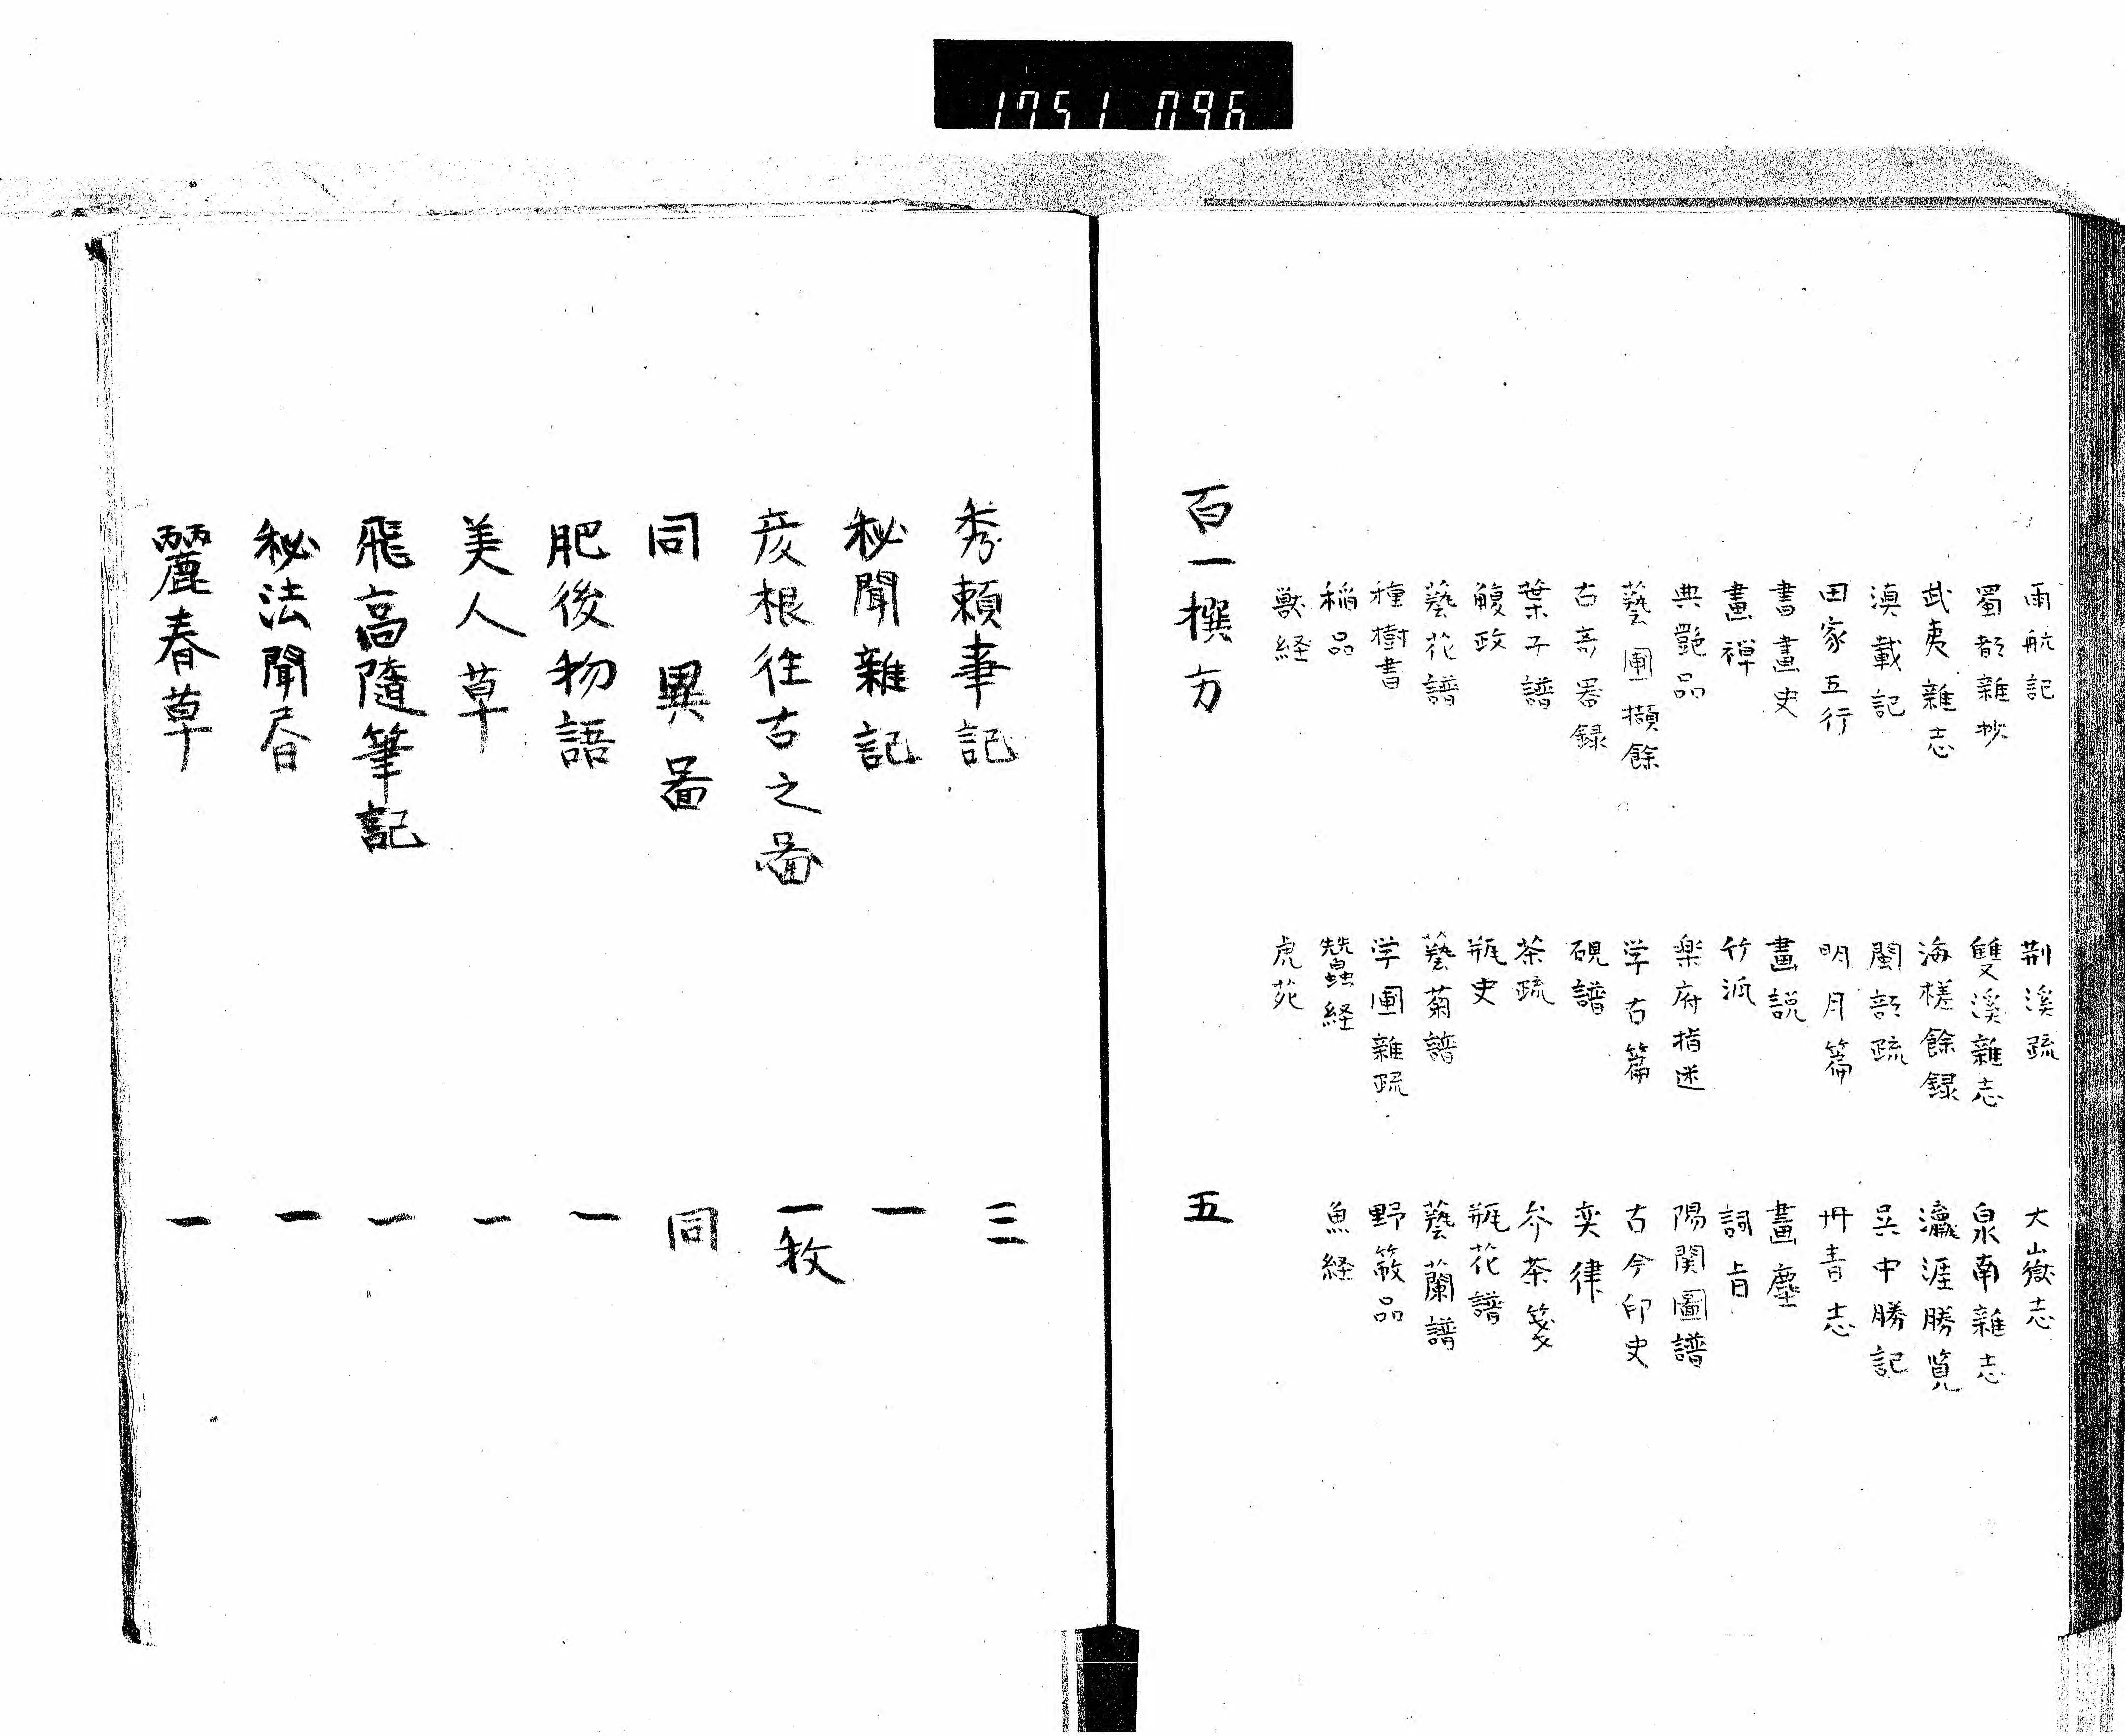 1751 096
雨航記 荆溪疏 大嶽志
蜀都雜抄 雙溪雜志 泉南雜志
武夷雜志 海槎餘録 瀛涯勝覧
滇載記 閩部疏 呉中勝記
田家五行 明月篇 丹青志
書畫史 畫説 畫塵
畫禅 竹派 詞旨
典艶品 楽府指迷 陽関圖譜
藝圃擷餘 学古篇 古今印史
古奇器録 硯譜 奕律
葉子譜 茶疏 岕茶箋
觴政 瓶史 瓶花譜
藝花譜 藝菊譜 藝蘭譜
種樹書 学圃雜疏 野菽品
稲品 蠶経 魚経
獣経 虎苑
百一撰方 五
秀頼事記 三
秘聞雜記 一
彦根往古之啚 一枚
同異啚 同
肥後物語 一
美人草 一
飛高隨筆記 一
秘法聞昏 一
麗春草 一